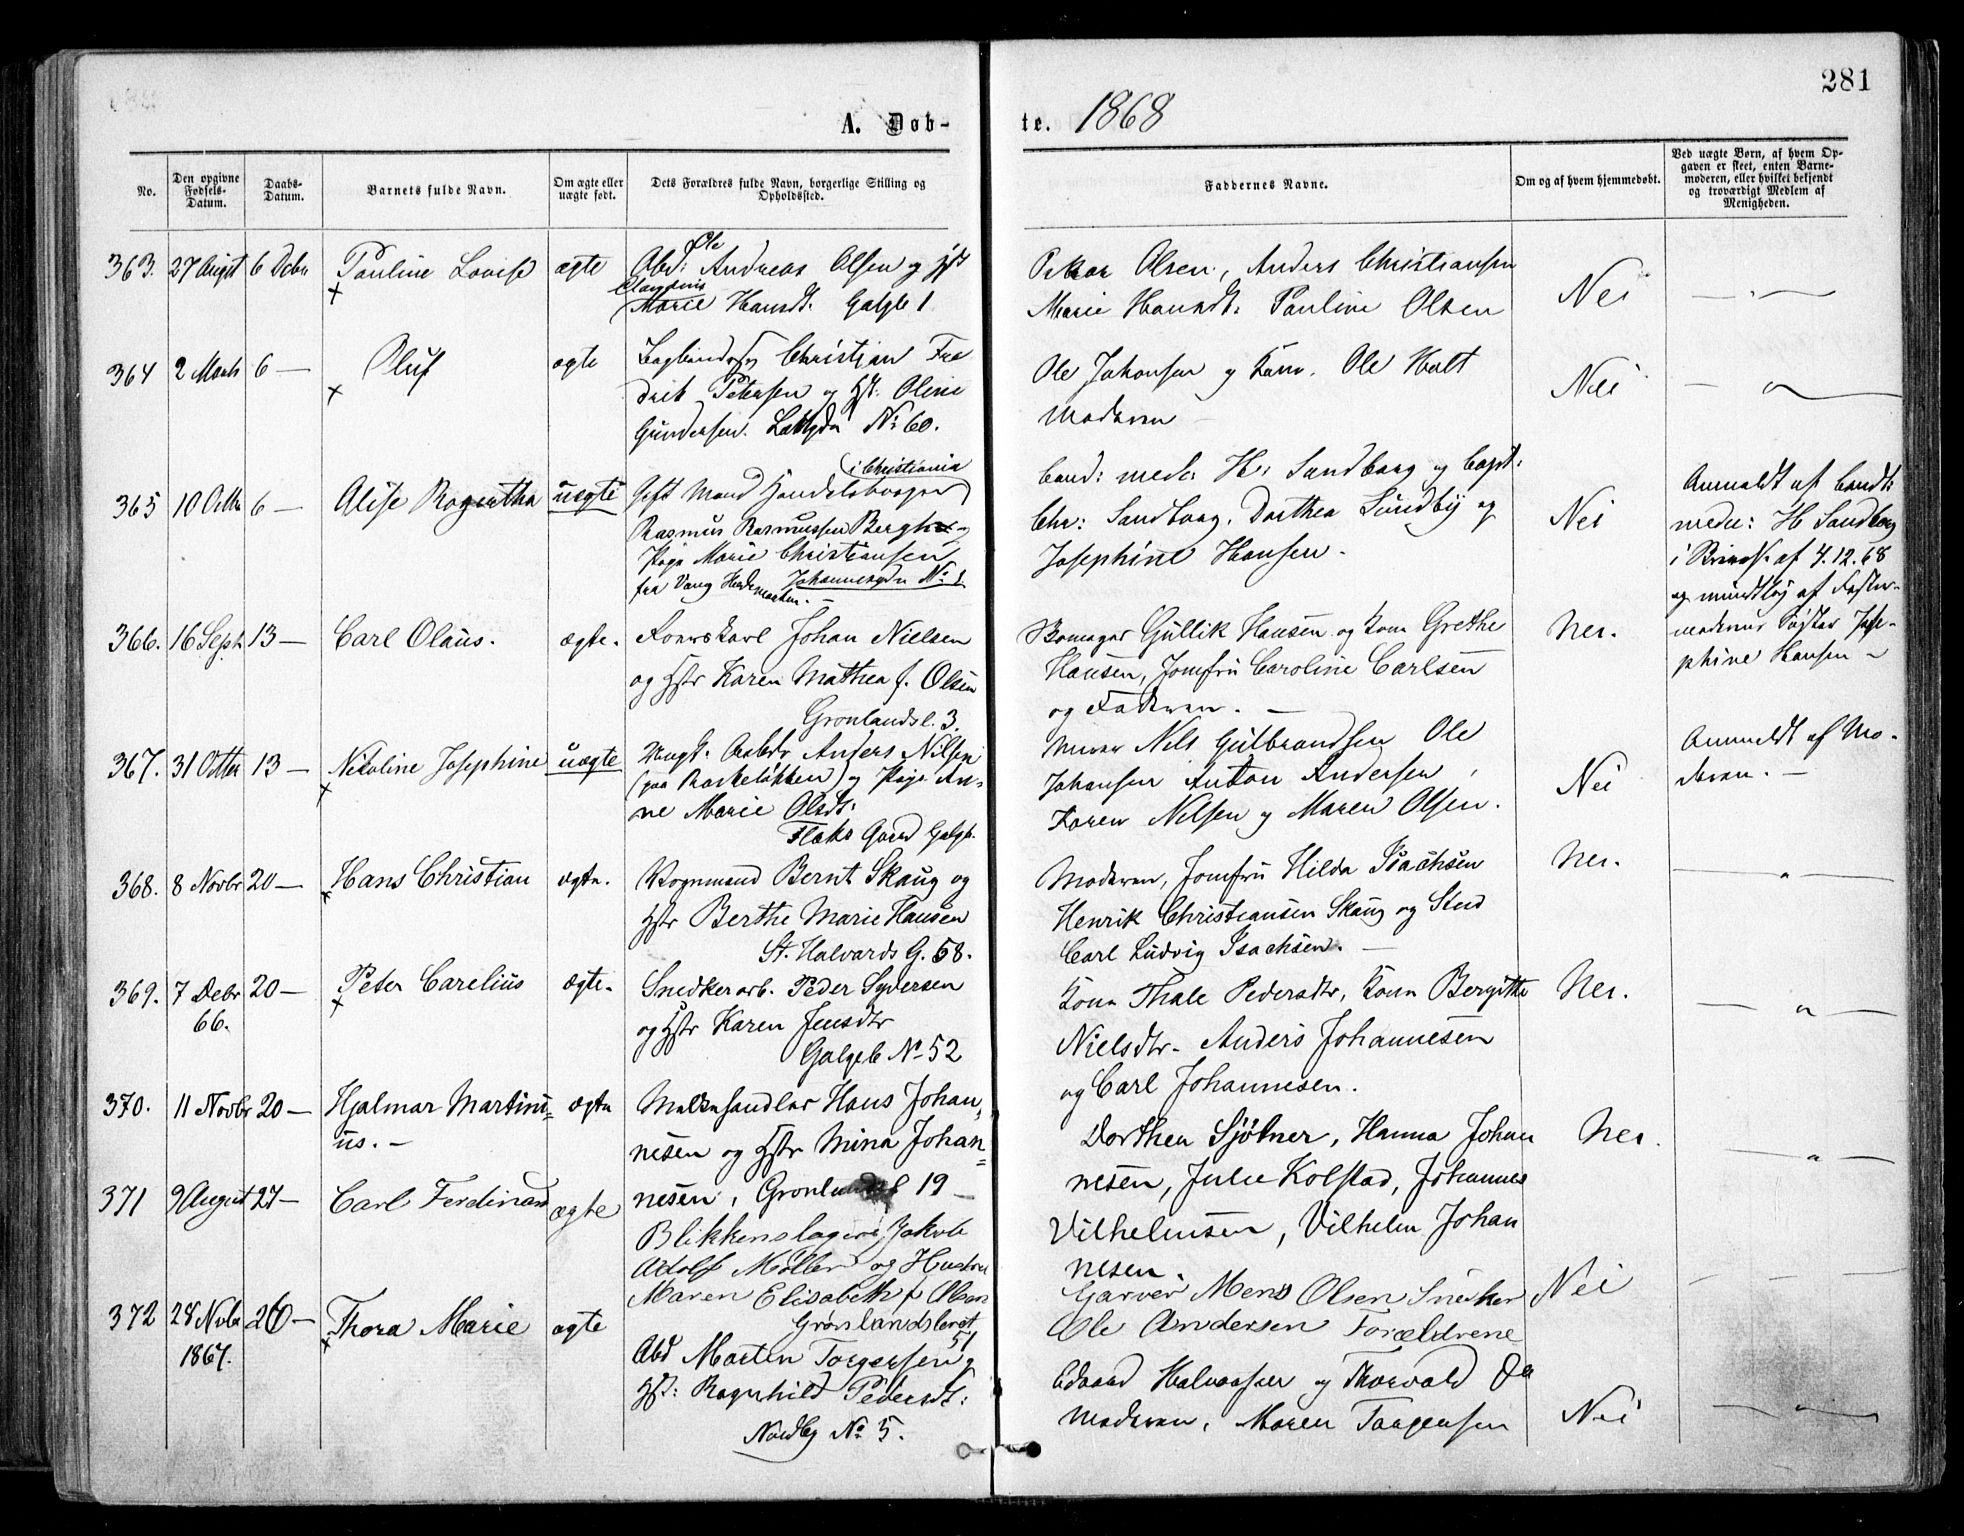 281
A. Døb-
te. 1868
No.
Den opgivne Fødsels-Datum.
Daabs-Datum.
Barnets fulde Navn.
Om ægte eller uægte født.
Dets Forældres fulde Navn, borgerlige Stilling og Opholdssted.
Faddernes Navne.
Om og af hvem hjemmedøbt.
Ved uægte Børn, af hvem Opgaven er skeet, enten Barnemoderen, eller hvilket bekjendt og troværdigt Medlem af Menigheden.
363. 27 August 6 Debr Pauline Lovise ægte
Ole
Abd: Andreas Olsen og Hst
Marie Hansdt. Galgb 1
Olsen, Anders Christiansen
Marie Hansdt. Pauline Olsen
Nei
364 2 Marts 6 — Oluf ægte
Christian Fre
drik Petersen og Hst: Oline
Gundersen. No 60.
Ole Johansen og Kone. Ole Holt
Moderen
Nei
365 10 Octbr 6 — Alise Ragertha uægte
i Christiania
Gift Mand Handelsborger
Rasmus Rasmussen Bergh
Pige Marie Christiansen
fra Vang Hedemarken. Johannesgdn No 1
Cand: med: H. Sandborg og Capt:
Chr: Sandborg, Dorthea Sundby og
Josephine Hansen.
Nei
Anmeldt af Candt:
med: H Sandborg
i Skrivelse af 4.12.68
og mundtlig af Foster-
moderens Søster Jose-
phine Hansen —
366. 16 Septb 13 — Carl Olaus. ægte.
Johan Nielsen
og Hstr Karen Mathea f. Olsen
Gronlandsl. 3.
Gullik Hansen og Kone Grethe
Hansen, Jomfru Caroline Carlsen
og Faderen. —
Nei.
367. 31 Octbr 13 — Nicoline Josephine uægte
Ungk. Arbdr Anders Nilsen
(paa Rodeløkken) og Pige An-
ne Marie Olsdt:
Flaks Gaard Galgb.
Murer Nils Gulbrandsen Ole
Johansen Anton Andersen,
Karen Nilsen og Maren Olsen.
Nei
Anmeldt af Mo-
deren. —
368. 8 Novbr 20 — Hans Christian ægte.
Vognmand Bernt Skaug og
Hstr Berthe Marie Hansen
St. Halvards G. 58.
Moderen, Jomfru Hilda Isachsen
Henrik Christiansen Skaug og Stud
Carl Ludvig Isachsen. —
Nei.
369. 7 Debr 66. 20 — Peter Carelius ægte.
Snedkerarb. Peder Syversen
og Hstr Karen Jensdtr
Galgeb No 52
Kone Thale Pedersdtr, Kone Bergitte
Nielsdtr. Anders Johannesen
og Carl Johannesen.
Nei.
370. 11 Novbr 20 — Hjalmar Martini=
us. — ægte
Melkehandler Hans Johan=
nesen og Hstr Mina Johan=
nesen, Gronlandsl 19 —
Dorthea Sjølner, Hanna Johan
nesen, Julie Kolstad, Johannes
Vilhelmsen, Vilhelm Johan
nesen.
Nei.
371 9 August 27 — Carl Ferdinand ægte
Blikkenslager Jakob
Adolf Møller og Hustru
Maren Elisabeth f Olsen
Grønlandsleret
51
Garver Mons Olsen Snedker
Ole Andersen Forældrene
Nei
372 28 Novbr 1867. 26 — Thora Marie ægte
Abd Morten Torgersen og
Hst: Ragnhild Pedersdt:
Nordbg No 5.
Edvard Halvorsen og Thorvald Do
Moderen, Maren Torgersen
Nei